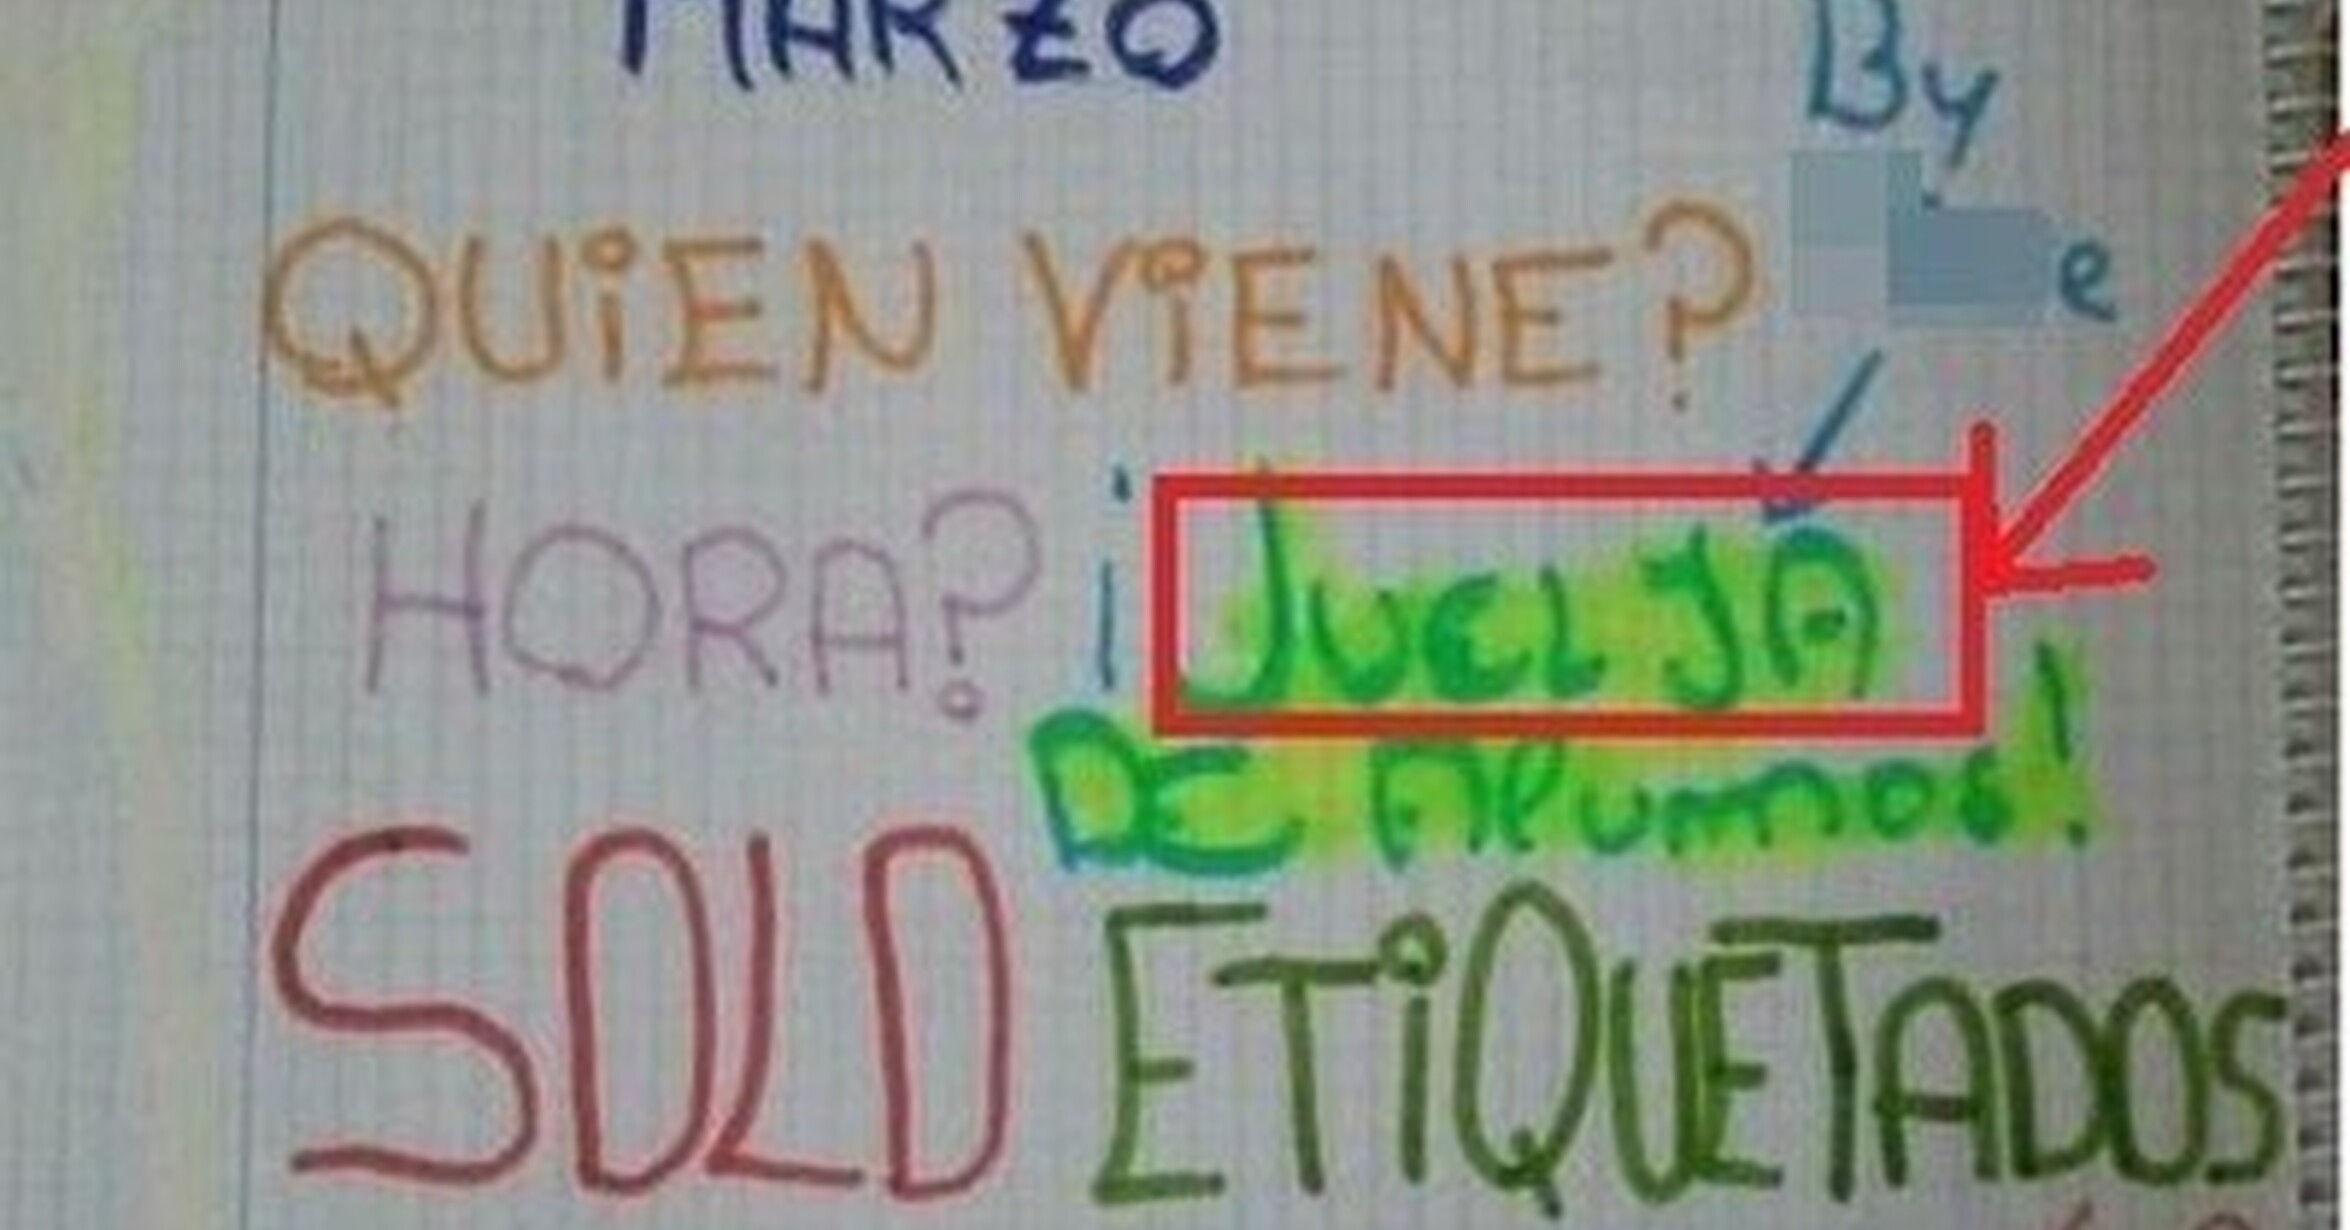 MARZO
By
QUiEN ViENE?
e
HORA?
¡JUELJA
DE Alumnos!
SOLO ETiQUETADOS